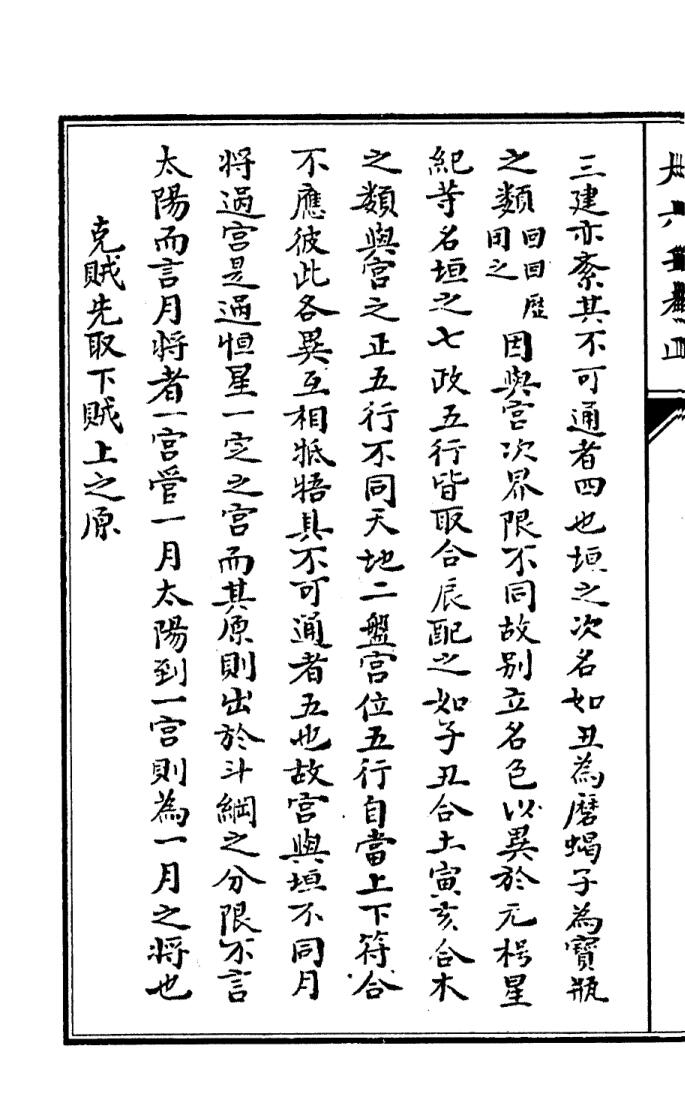 三建亦紊其不可通者四也垣之次名如丑為磨蝎子為寶瓶
之類回回歴同之因與宫次界限不同故别立名色以異於元枵星
紀等名垣之七政五行皆取合辰配之如子丑合土寅亥合木
之類與宫之正五行不同天地二盤宫位五行自當上下符合
不應彼此各異互相牴牾其不可通者五也故宫與垣不同月
將過宫是過恒星一定之宫而其原則出於斗綱之分限不言
太陽而言月將者一宫管一月太陽到一宫則為一月之將也
克賊先取下賊上之原